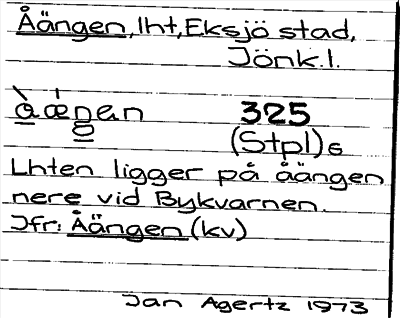 Åängen, lht, Eksjö stad,
Jönk.l.
å̀ǽŋen 325
(Stpl)6
Lhten ligger på åängen
nere vid Bykvarnen.
Jfr: Åängen (kv)
Jan Agertz 1973